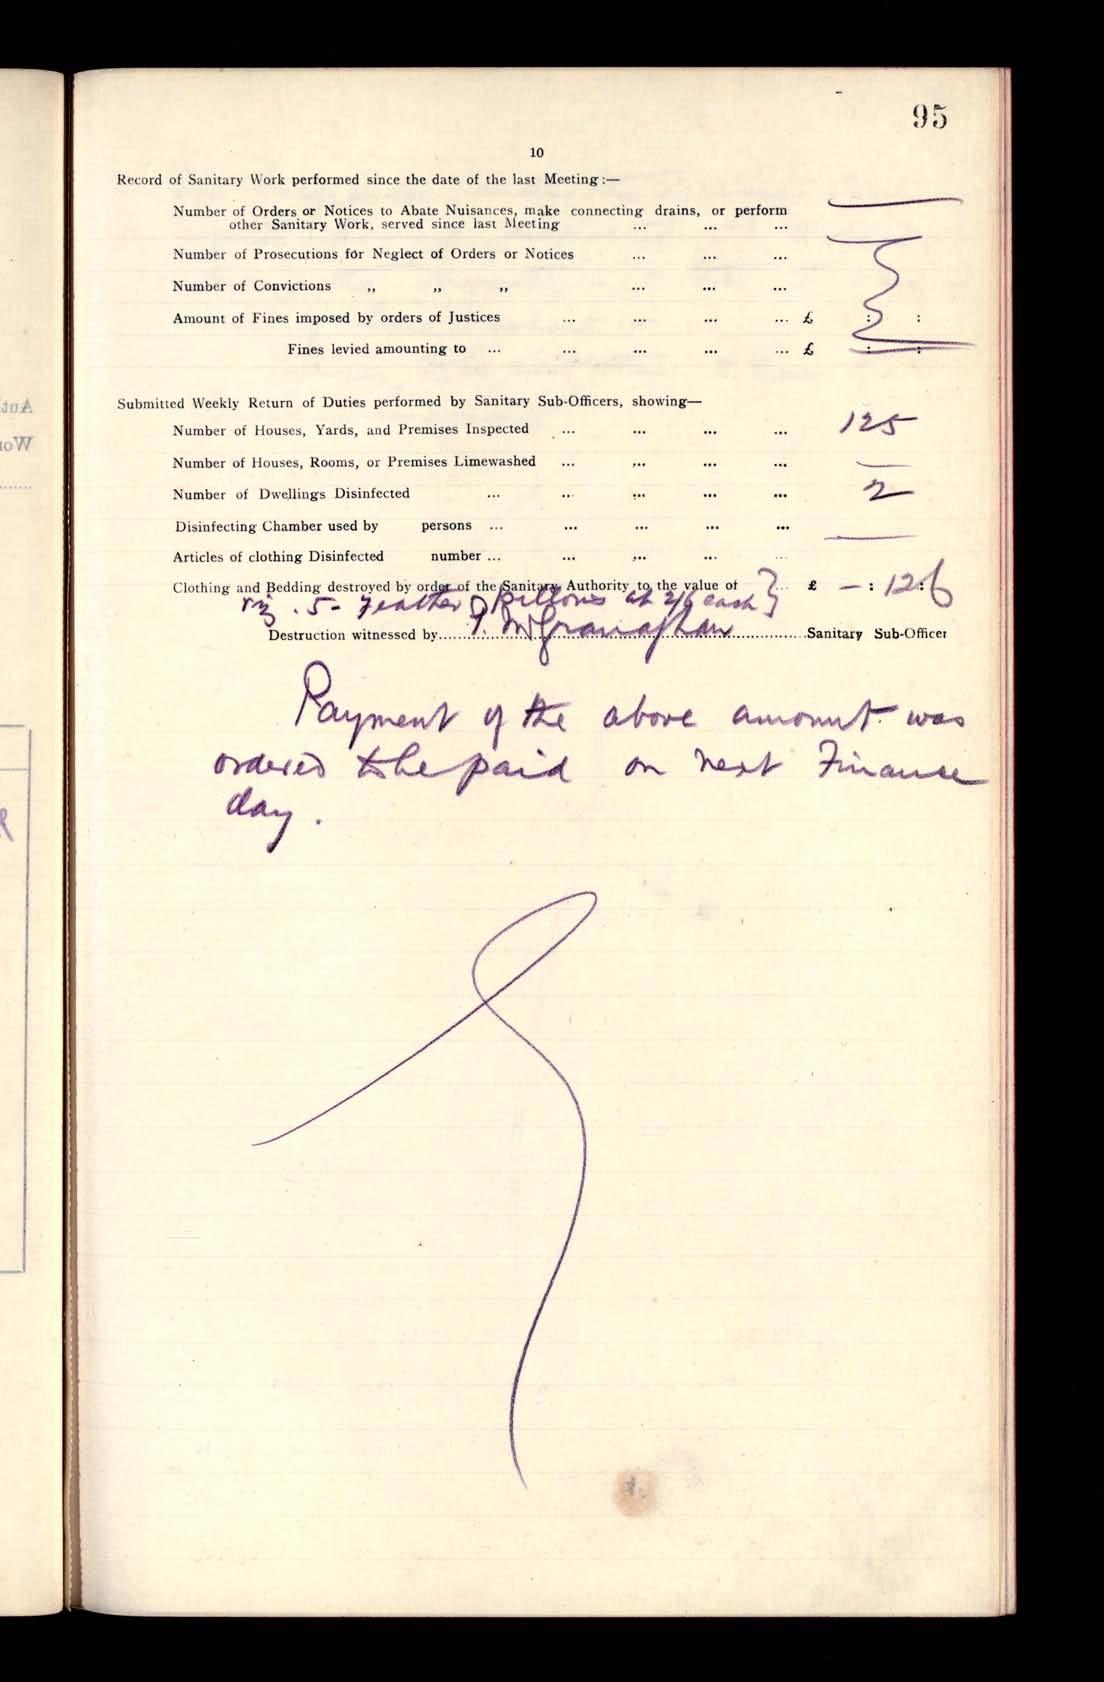 95
10
Record of Sanitary Work performed since the date of the last Meeting:—
Number of Orders or Notices to Abate Nuisances, make connecting drains, or perform
other Sanitary Work, served since last Meeting ... ... ...
Number of Prosecutions for Neglect of Orders or Notices ... ... ...
Number of Convictions ,, ,, ,, ... ... ...
Amount of Fines imposed by orders of Justices ... ... ... ... £ : :
Fines levied amounting to ... ... ... ... ... £ : :
Submitted Weekly Return of Duties performed by Sanitary Sub-Officers, showing—
Number of Houses, Yards, and Premises Inspected ... ... ... ... 125
Number of Houses, Rooms, or Premises Limewashed ... ... ... ... —
Number of Dwellings Disinfected ... ... ... ... ... 2
Disinfecting Chamber used by persons ... ... ... ... ...
Articles of clothing Disinfected number ... ... ... ... ...
Clothing and Bedding destroyed by order of the Sanitary Authority to the value of } ... £ — : 12 : 6
viz. 5 - Feather Pillows at 2/6 each }
Destruction witnessed by P. McGranaghan Sanitary Sub-Officer
Payment of the above amount was
ordered to be paid on next Finance
day.
Aut
Wor